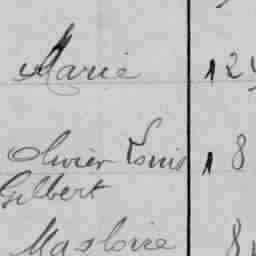 Marie 12
Olivier Louis 18
Gilbert
Magloire 8